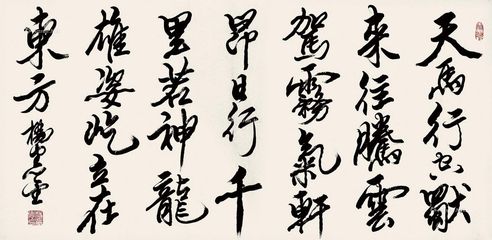 天馬行空獸
来往騰雲
駕霧氣軒
昂日行千
里若神龍
雄姿屹立在
東方